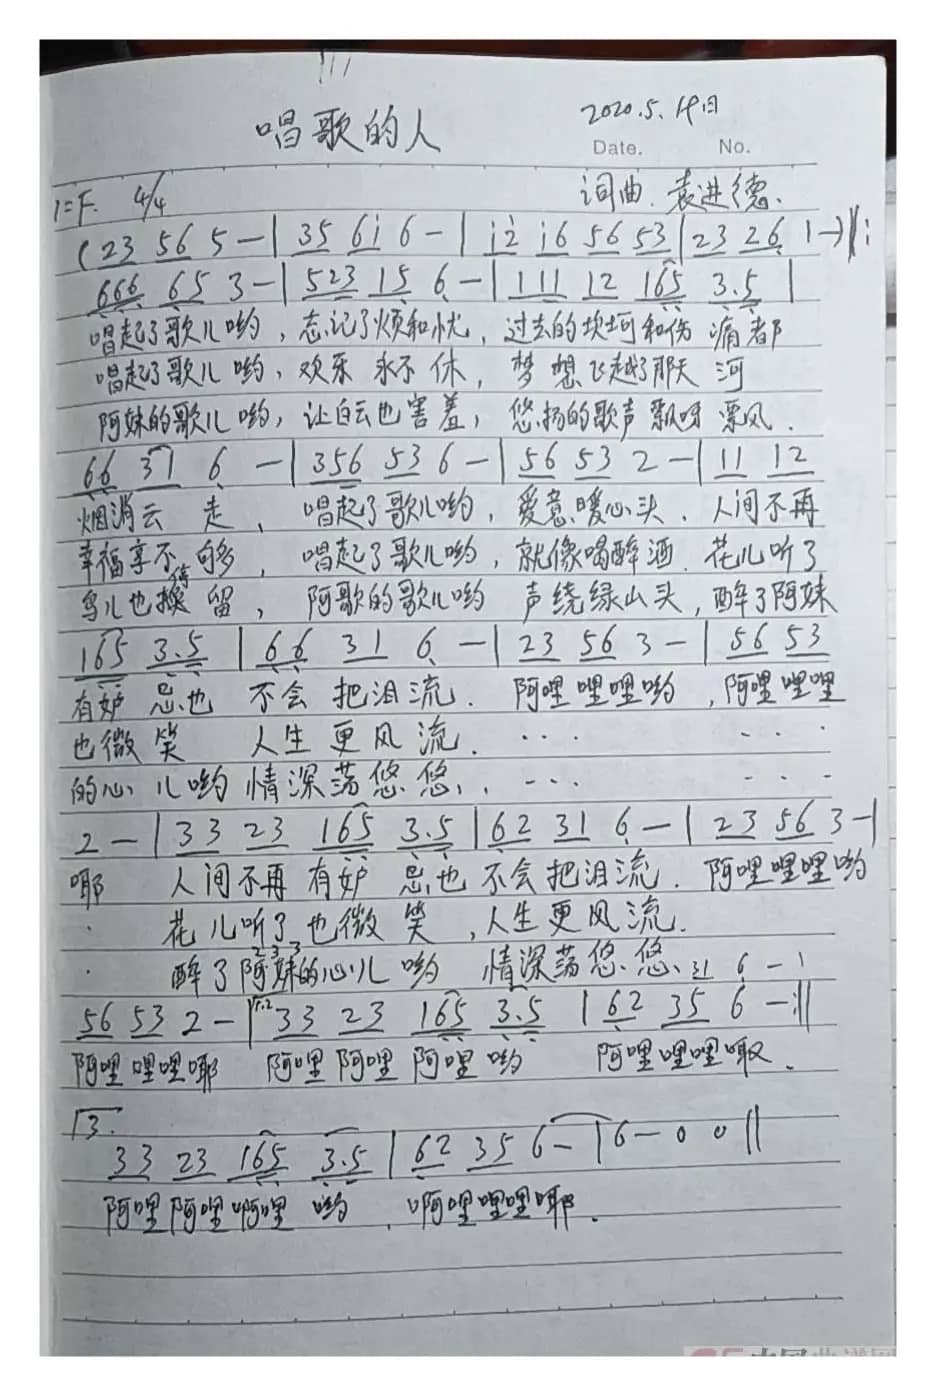 唱歌的人
2020.5.19日
Date. No.
1=F. 4/4
词曲.袁进德.
(23 56 5 — | 35 6i 6 — | i2 i6 56 53 | 23 26 1 —)‖:
666 65 3 — | 523 15 6 — | 111 12 165 3.5 |
唱起了歌儿哟,忘记了烦和忧,过去的坎坷和伤痛都
唱起了歌儿哟,欢乐永不休,梦想飞越了那天河
阿妹的歌儿哟,让白云也害羞,悠扬的歌声飘呀飘风.
66 31 6 — | 356 53 6 — | 56 53 2 — | 11 12
烟消云走,唱起了歌儿哟,爱意暖心头.人间不再
幸福享不够,唱起了歌儿哟,就像喝醉酒.花儿听了
停
鸟儿也留,阿歌的歌儿哟 声绕绿山头,醉了阿妹
165 3.5 | 66 31 6 — | 23 56 3 — | 56 53
有妒忌也 不会把泪流.阿哩哩哩哟,阿哩哩哩
也微笑 人生更风流. ... ...
的心儿哟情深荡悠悠,. ... ...
2 — | 33 23 165 3.5 | 62 31 6 — | 23 56 3 — |
耶 人间不再有妒忌也不会把泪流.阿哩哩哩哟
. 花儿听了也微笑,人生更风流.
2 3 3
. 醉了阿妹的心儿哟 情深荡悠悠. 31 6 —
56 53 2 — | 1.2 33 23 165 3.5 | 62 35 6 — :‖
阿哩哩哩耶 阿哩阿哩阿哩哟 阿哩哩哩耶.
3.
33 23 165 3.5 | 62 35 6 — | 6 — 0 0 ‖
阿哩阿哩啊哩哟,啊哩哩哩耶.